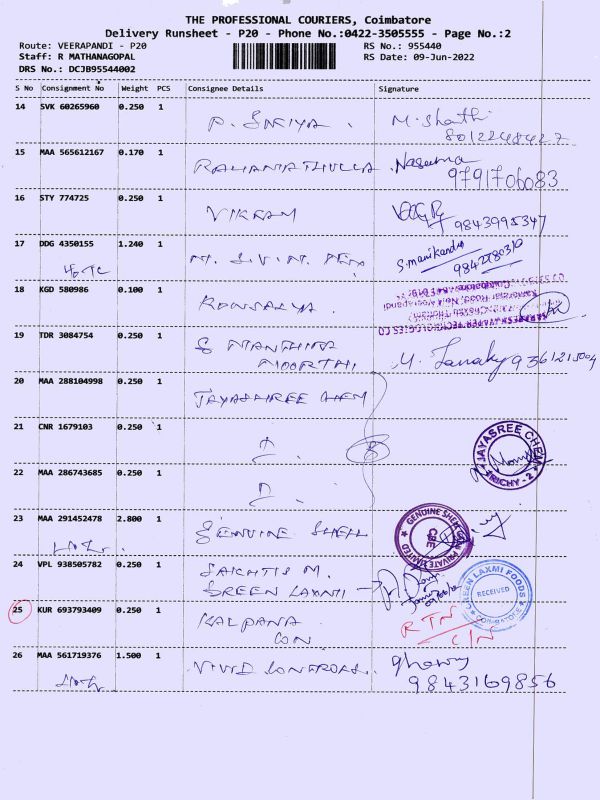 THE PROFESSIONAL COURIERS, Coimbatore
Delivery Runsheet - P20 - Phone No.:0422-3505555 - Page No.:2
Route: VEERAPANDI - P20
RS No.: 955440
Staff: R MATHANAGOPAL
RS Date: 09-Jun-2022
DRS No.: DCJB95544002
S No Consignment No Weight PCS Consignee Details Signature
14 SVK 60265960 0.250 1
P. SAFIYA. M. Shathi
8012248427
15 MAA 565612167 0.170 1
RAHAMATHULLA. Naseema
9791706083
16 STY 774725 0.250 1
VIKRAM
9843995347
17 DDG 4350155 1.240 1
S. manikandan
18 KGD 580986 0.100 1
KONSALYA.
19 TDR 3084754 0.250 1
S MANTHIRA
MOORTHI,
M. Janaky
20 MAA 288104998 0.250 1
JAYASHREE CHEM
21 CNR 1679103 0.250 1
JAYASREE CHEM
TRICHY - 2
22 MAA 286743685 0.250 1
23 MAA 291452478 2.800 1
GENUINE SHELL
GENUINE SHELL
PRIVATE LIMITED
CBE
24 VPL 938505782 0.250 1
SAKHTIS M.
GREEN LAXMI
GREEN LAXMI FOODS
RECEIVED
COIMBATORE
25 KUR 693793409 0.250 1
KALPANA
CON
RTN
C/N
26 MAA 561719376 1.500 1
VIVID CONTROLS.
9843169856